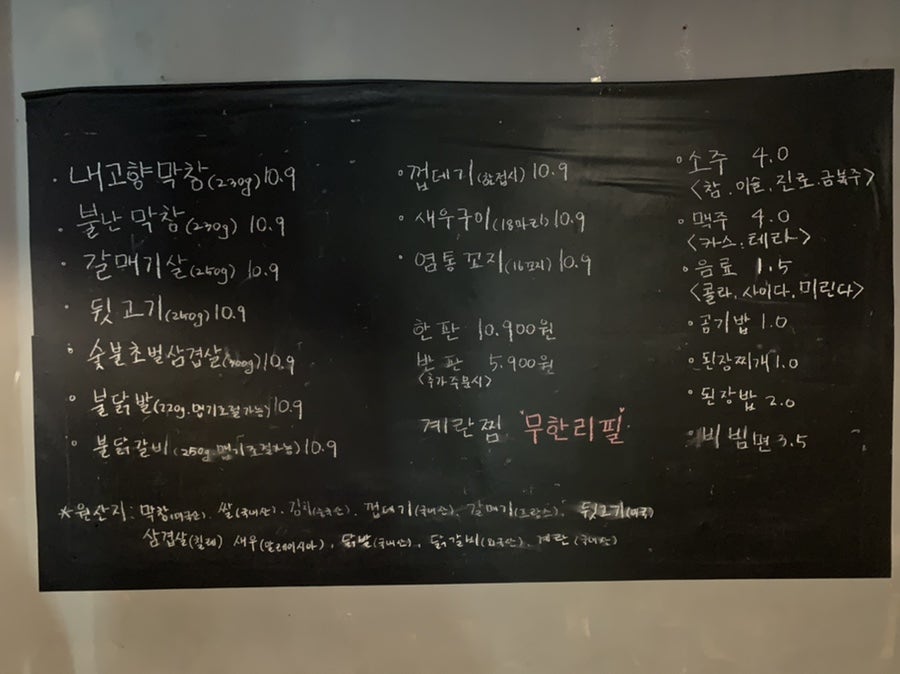 · 내고향막창(230g) 10.9
· 불난막창(230g) 10.9
· 갈매기살(250g) 10.9
· 뒷고기(240g) 10.9
· 숯불초벌삼겹살(300g) 10.9
· 불닭발(220g.맵기조절가능) 10.9
· 불닭갈비(250g.맵기조절가능) 10.9
· 껍데기(한접시) 10.9
· 새우구이(18마리) 10.9
· 염통꼬지(16꼬지) 10.9
한판 10.900원
반판 5.900원
<추가주문시>
계란찜 "무한리필"
· 소주 4.0
<참.이슬.진로.금복주>
· 맥주 4.0
<카스.테라>
· 음료 1.5
<콜라.사이다.미린다>
· 공기밥 1.0
· 된장찌개 1.0
· 된장밥 2.0
· 비빔면 3.5
*원산지: 막창(미국산). 쌀(국내산). 김치(중국산). 껍데기(국내산). 갈매기(프랑스). 뒷고기(미국)
삼겹살(칠레) 새우(말레이시아). 닭발(국내산). 닭갈비(외국산). 계란(국내산)